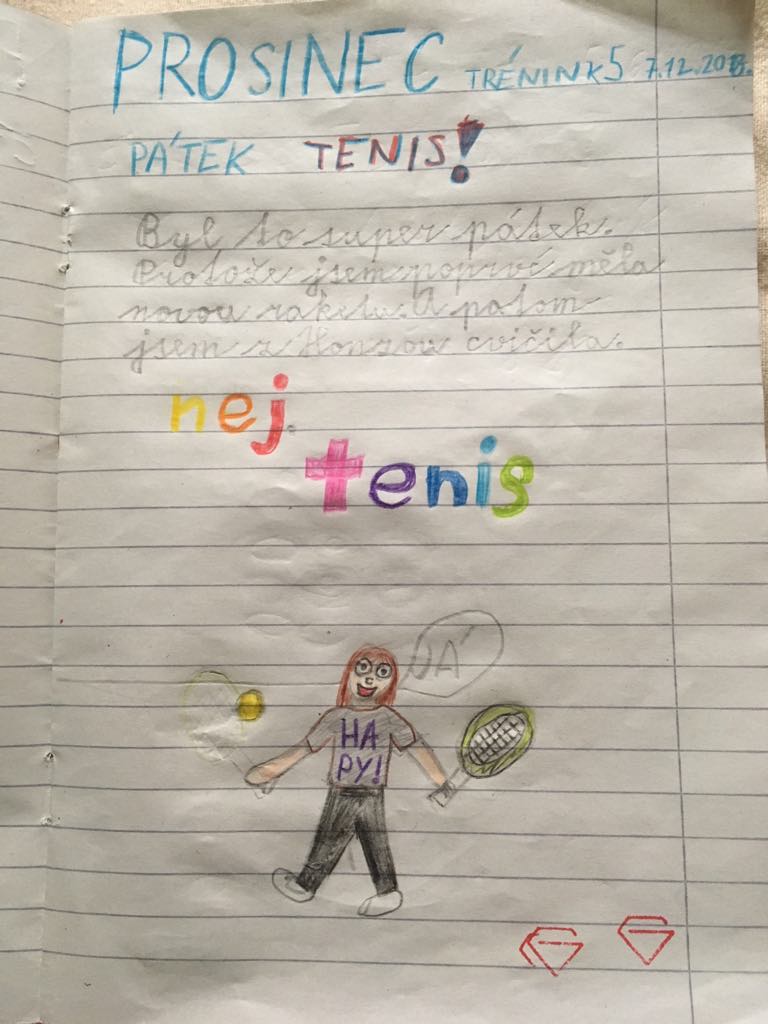 PROSINEC TRÉNINK 5 7.12.2018.
PÁTEK TENIS!
Byl to super pátek.
Protože jsem poprvé měla
novou raketu. A potom
jsem s Honzou cvičila.
nej.
tenis
JÁ
HA
PY!